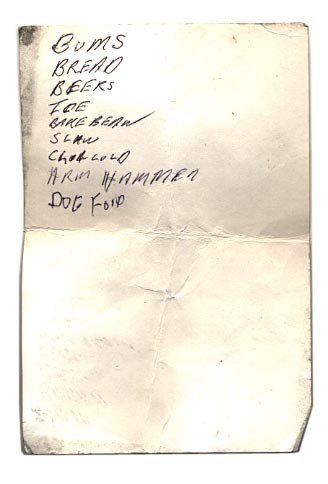 BUMS
BREAD
BEERS
ICE
BAKE BEAN
SLAW
ARM HAMMER
DOG FOOD